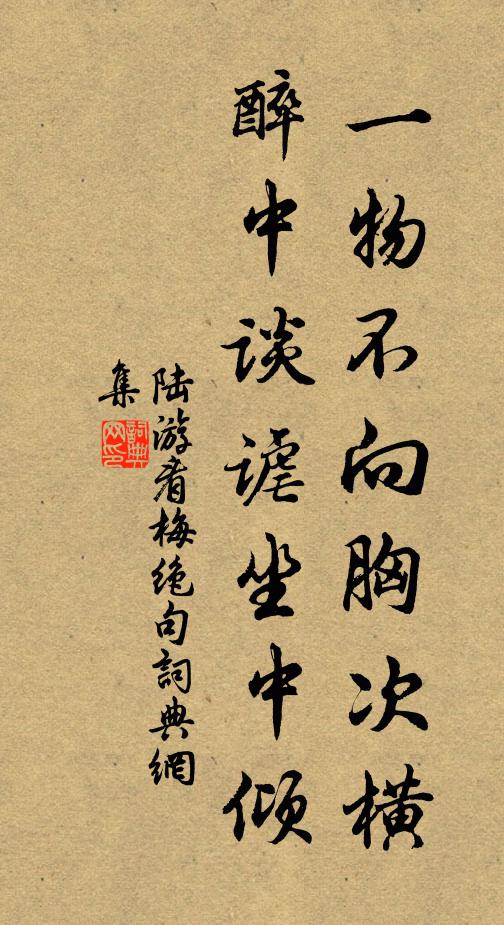 一物不向胸次横
醉中谈谑坐中倾
陆游看梅绝句詞典網
集
詞典
网印